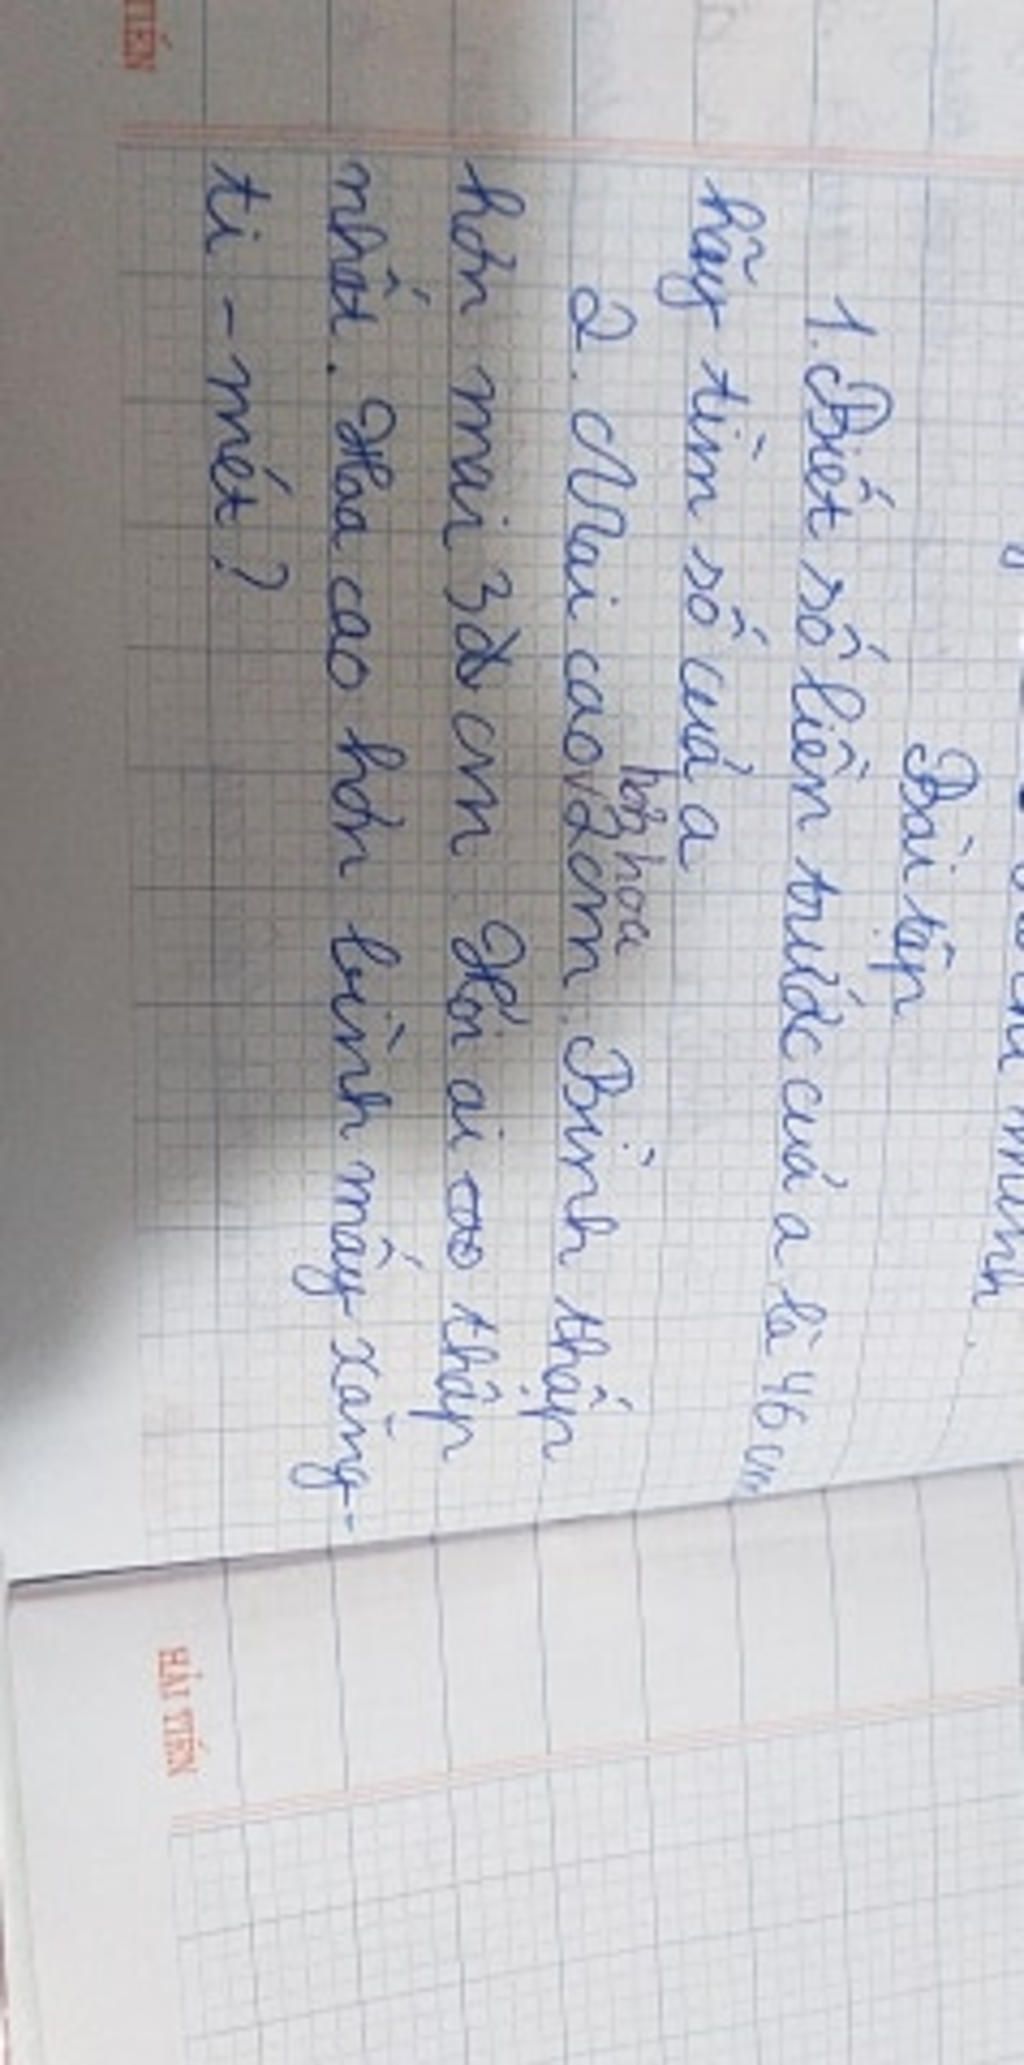 Bài tập
1. Biết số liền trước của a là 46 cm
hãy tìm số của a
hơn hoa
2. Mai cao v 2cm. Bình thấp
hơn mai 3 cm. Hỏi ai thấp
nhất. Hoa cao hơn bình mấy xăng-
ti-mét?
TIẾN
HẢI TIẾN